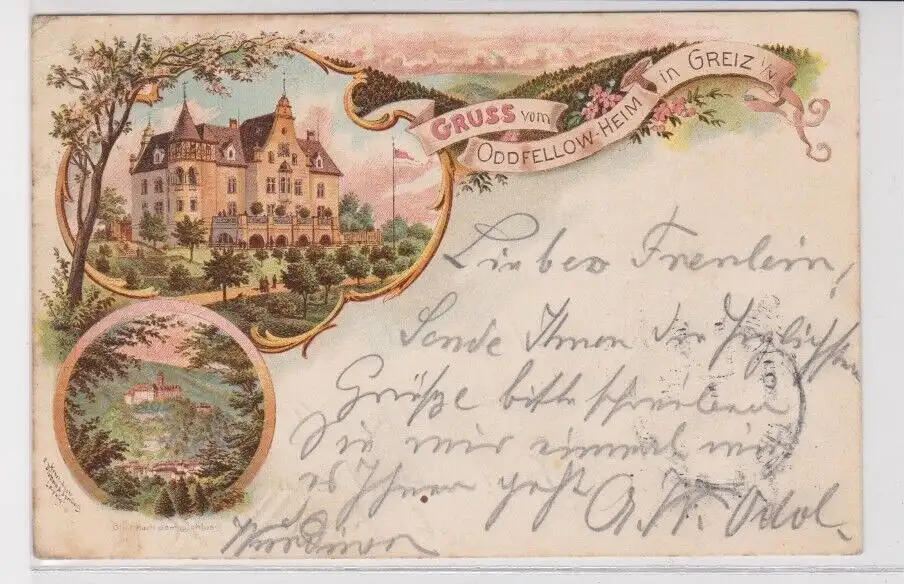 GRUSS vom
ODDFELLOW-HEIM in GREIZ i/V
Liebes Freulein,
Sende Ihnen die herzlichsten
Grüße bitte schreiben
Sie mir einmal wie
es Ihnen geht
Blick nach dem Schloss